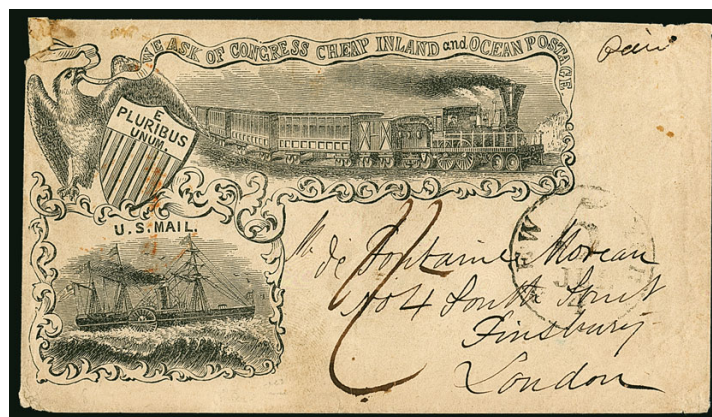 WE ASK OF CONGRESS CHEAP INLAND and OCEAN POSTAGE.
Paid
E
PLURIBUS
UNUM.
U.S. MAIL.
de Fontaine Moreau
No 4 South Street
Finsbury
London